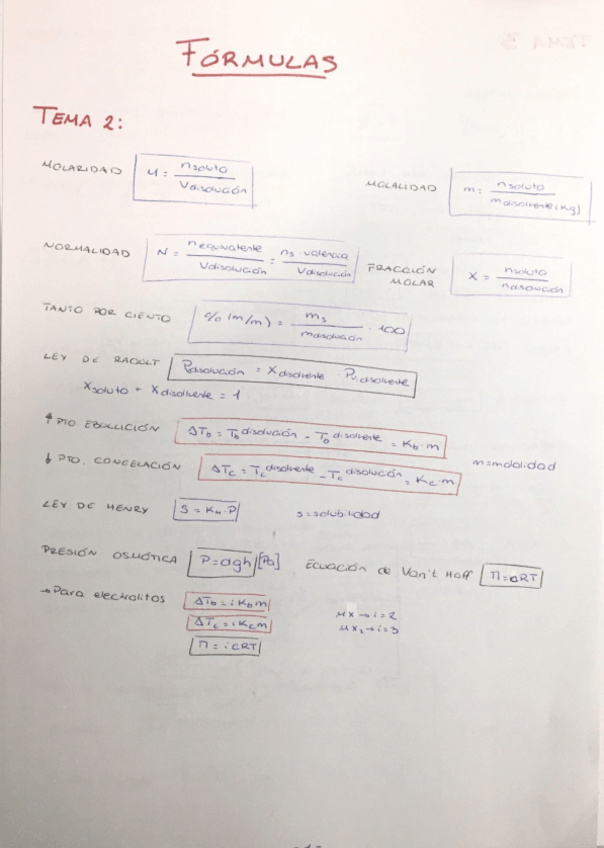 FÓRMULAS
TEMA 2:
MOLARIDAD M = nsoluto / Vdisolución MOLALIDAD m = nsoluto / mdisolvente (Kg)
NORMALIDAD N = nequivalente / Vdisolución = ns · valencia / Vdisolución FRACCIÓN MOLAR X = nsoluto / ndisolución
TANTO POR CIENTO % (m/m) = ms / mdisolución · 100
LEY DE RAOULT Pvdisolución = Xdisolvente · Pv disolvente
Xsoluto + Xdisolvente = 1
↑ PTO EBULLICIÓN ΔTb = Tb disolución - Tb disolvente = Kb · m
m=molalidad
↓ PTO. CONGELACIÓN ΔTc = Tc disolvente - Tc disolución = Kc · m
LEY DE HENRY S = KH · P s=solubilidad
PRESIÓN OSMÓTICA P=ρgh [Pa] ECUACIÓN de Van't Hoff Π=cRT
→ Para electrolitos ΔTb = i Kb m MX → i = 2
ΔTc = i Kc m MX2 → i = 3
Π = i CRT